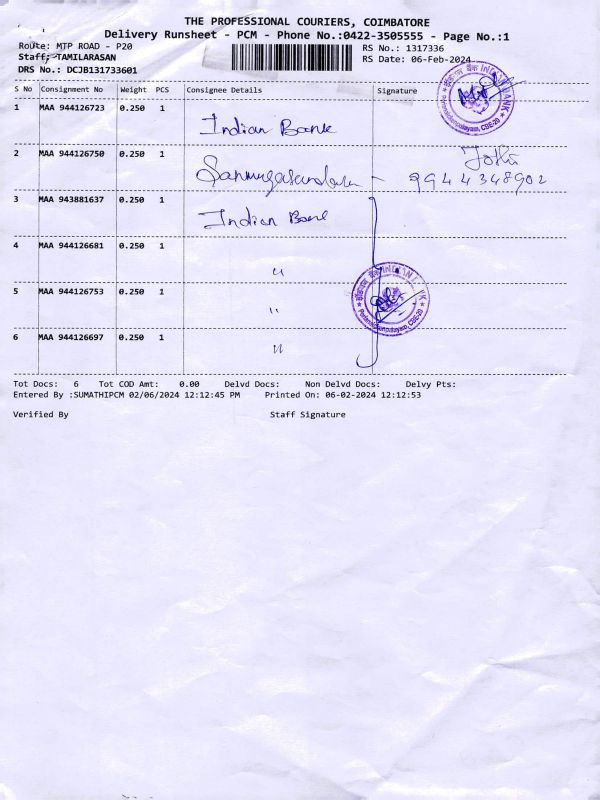 THE PROFESSIONAL COURIERS, COIMBATORE
Delivery Runsheet - PCM - Phone No.:0422-3505555 - Page No.:1
Route: MTP ROAD - P20 RS No.: 1317336
Staff: TAMILARASAN RS Date: 06-Feb-2024
DRS No.: DCJB131733601
S No Consignment No Weight PCS Consignee Details Signature
INDIAN BANK
CBE-20
1 MAA 944126723 0.250 1
Indian Bank
2 MAA 944126750 0.250 1 Jothi
- 9944348902
3 MAA 943881637 0.250 1 Indian Bank
4 MAA 944126681 0.250 1
"
5 MAA 944126753 0.250 1
"
CBE-20
6 MAA 944126697 0.250 1
"
Tot Docs: 6 Tot COD Amt: 0.00 Delvd Docs: Non Delvd Docs: Delvy Pts:
Entered By :SUMATHIPCM 02/06/2024 12:12:45 PM Printed On: 06-02-2024 12:12:53
Verified By Staff Signature